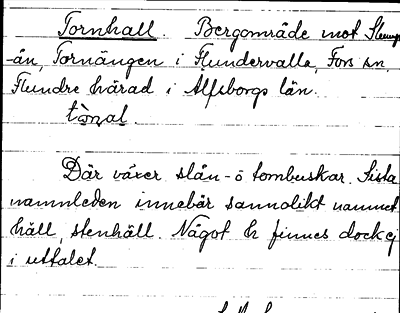 Tornhall. Bergområde mot Slumps
-ån, Tornängen i Flundervalla, Fors sn.
Flundre härad i Älfsborgs län.
Där växer slån- o tornbuskar. Sista
namnleden innebär sannolikt namnet
häll, stenhäll. Något h finnes dock ej
i uttalet.